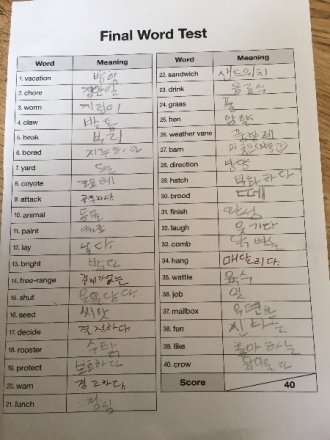 Final Word Test
Word Meaning
1. vacation 방학
2. chore 집안일
3. worm 지렁이
4. claw 발톱
5. beak 부리
6. bored
7. yard
8. coyote
9. attack 공격하다.
10. animal 동물
11. paint
12. lay 낳다
13. bright 밝다
14. free-range
15. shut
16. seed 씨앗
17. decide 결정하다.
18. rooster 수탉
19. protect 보호하다.
20. warn 경고하다.
21. lunch 점심
Word Meaning
22. sandwich 샌드위치
23. drink 음료수
24. grass 풀
25. hen 암탉
26. weather vane
27. barn
28. direction 방향
29. hatch 부화하다
30. brood
31. finish
32. laugh 웃기다
33. comb
34. hang 매달리다.
35. wattle 육수
36. job 일
37. mailbox 우편함
38. fun 신나는
39. like 좋아하는
40. crow
Score 40